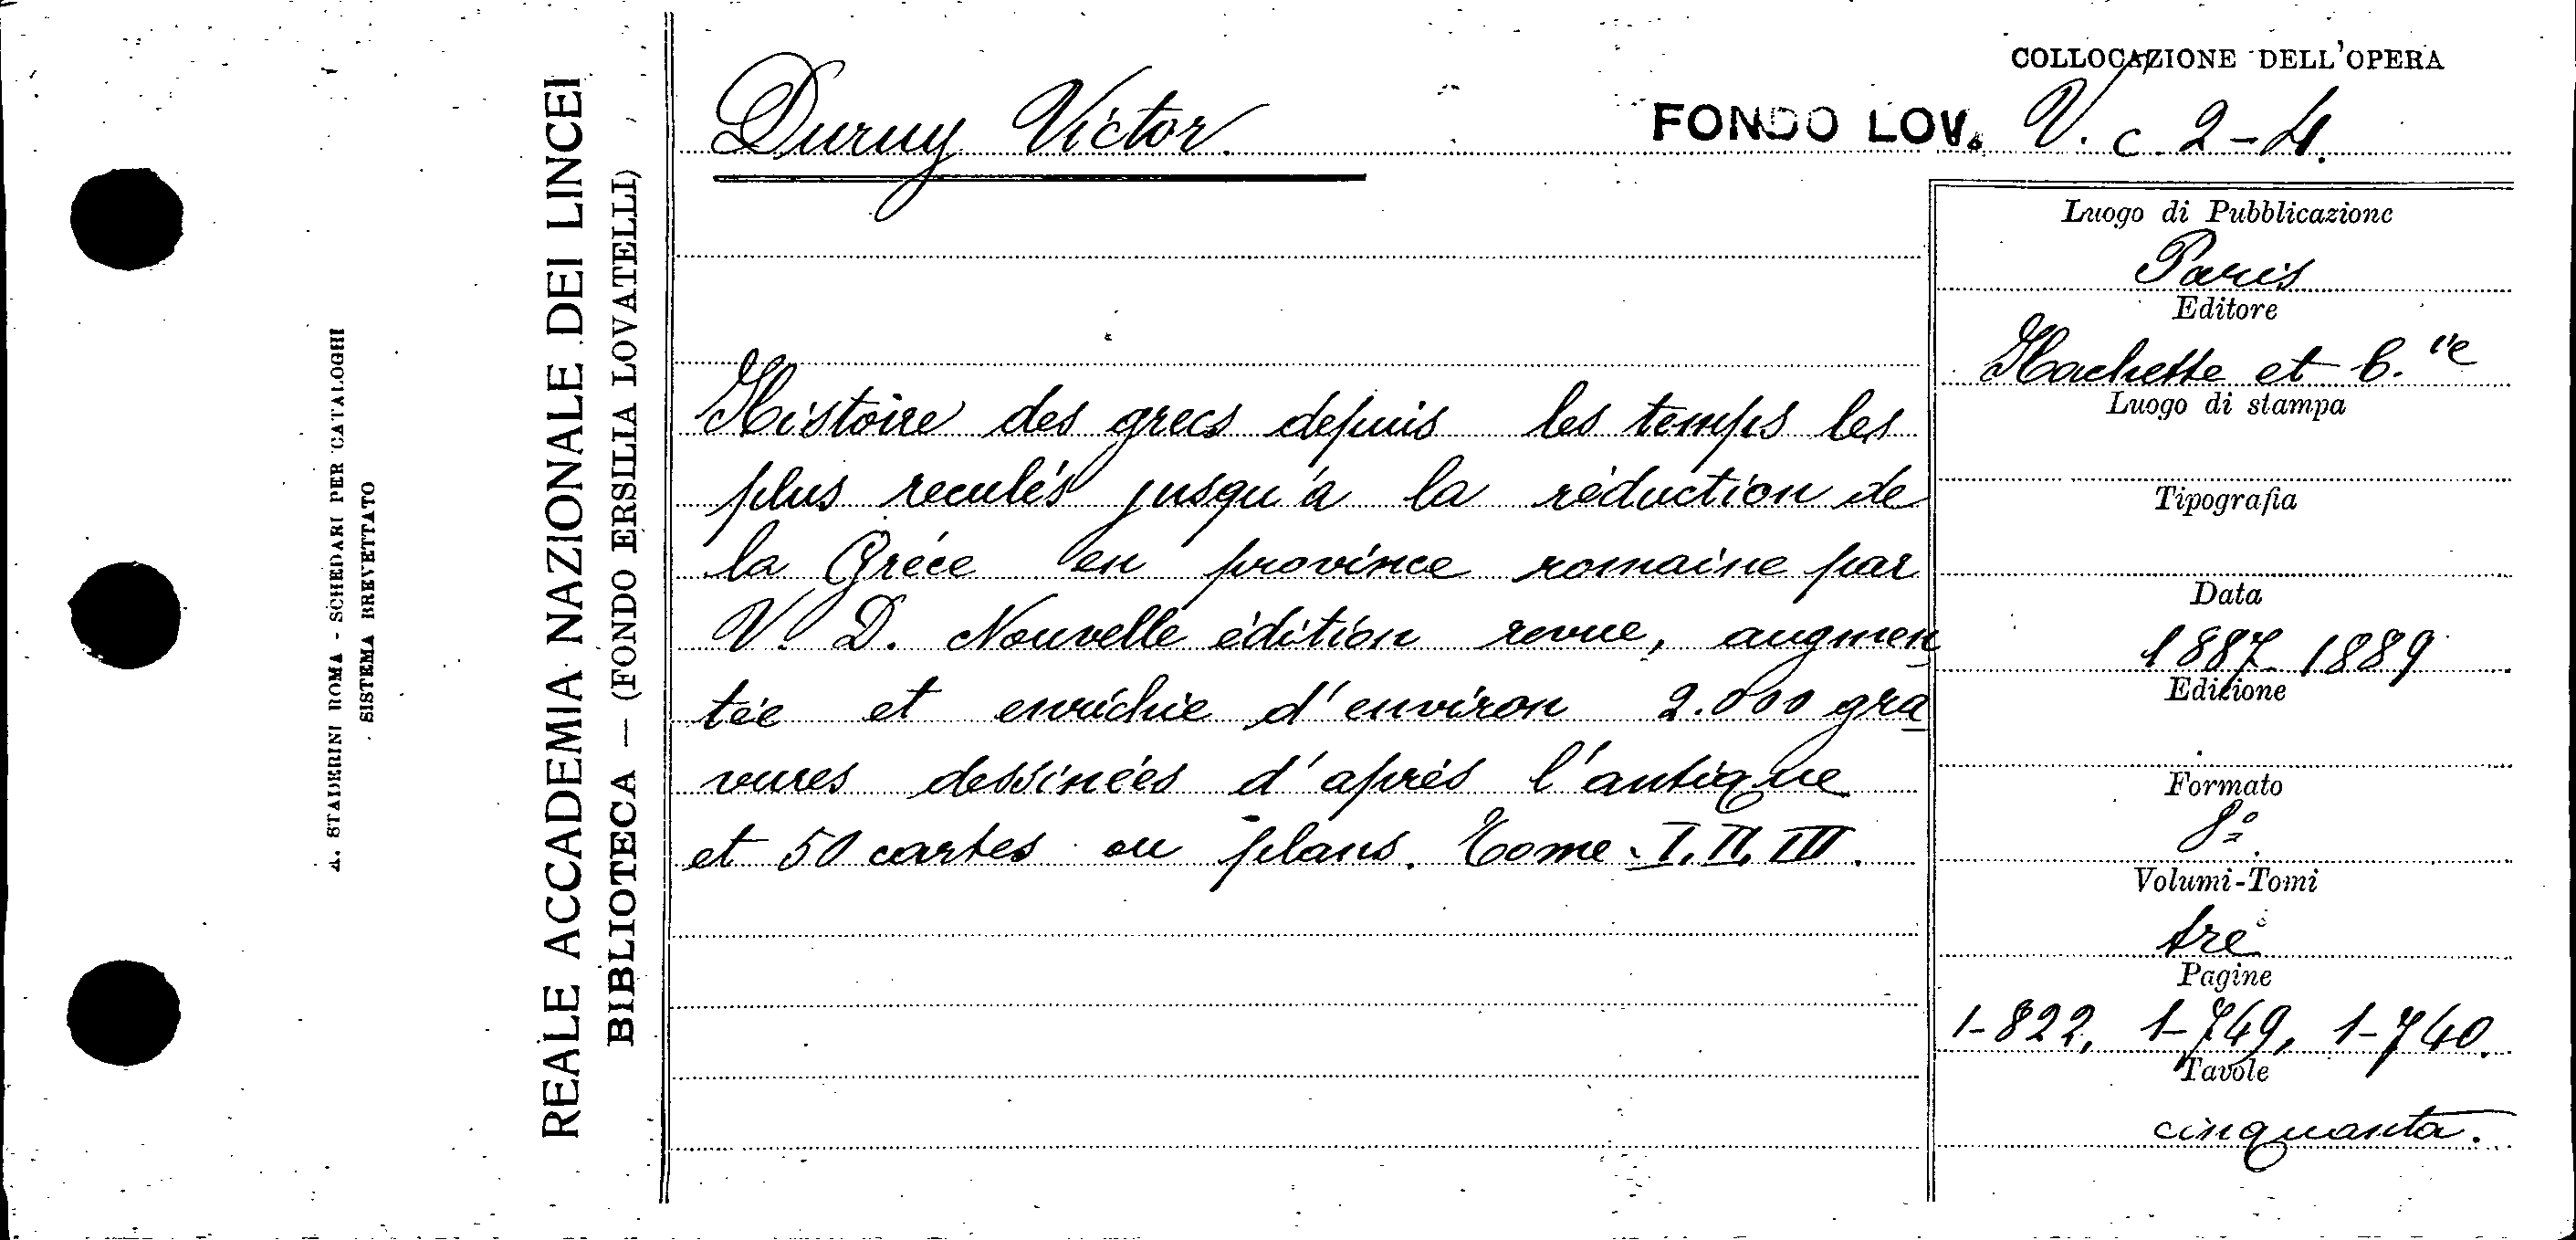 A. STADERINI ROMA - SCHEDARI PER CATALOGHI
SISTEMA BREVETTATO
REALE ACCADEMIA NAZIONALE DEI LINCEI
BIBLIOTECA — (FONDO ERSILIA LOVATELLI)
COLLOCAZIONE DELL'OPERA
Duruy Victor.
FONDO LOV. V. c. 2-4.
Histoire des grecs depuis les temps les
plus reculés jusqu'à la réduction de
la Grèce en province romaine par
V. D. Nouvelle édition revue, augmen
tée et enrichie d'environ 2.000 gra
vures dessinées d'après l'antique
et 50 cartes ou plans. Tome. I. II. III.
Luogo di Pubblicazione
Paris
Editore
Hachette et C.ie
Luogo di stampa
Tipografia
Data
1887 1889
Edizione
Formato
8º
Volumi-Tomi
tre
Pagine
1-822, 1-749, 1-740.
Tavole
cinquanta.